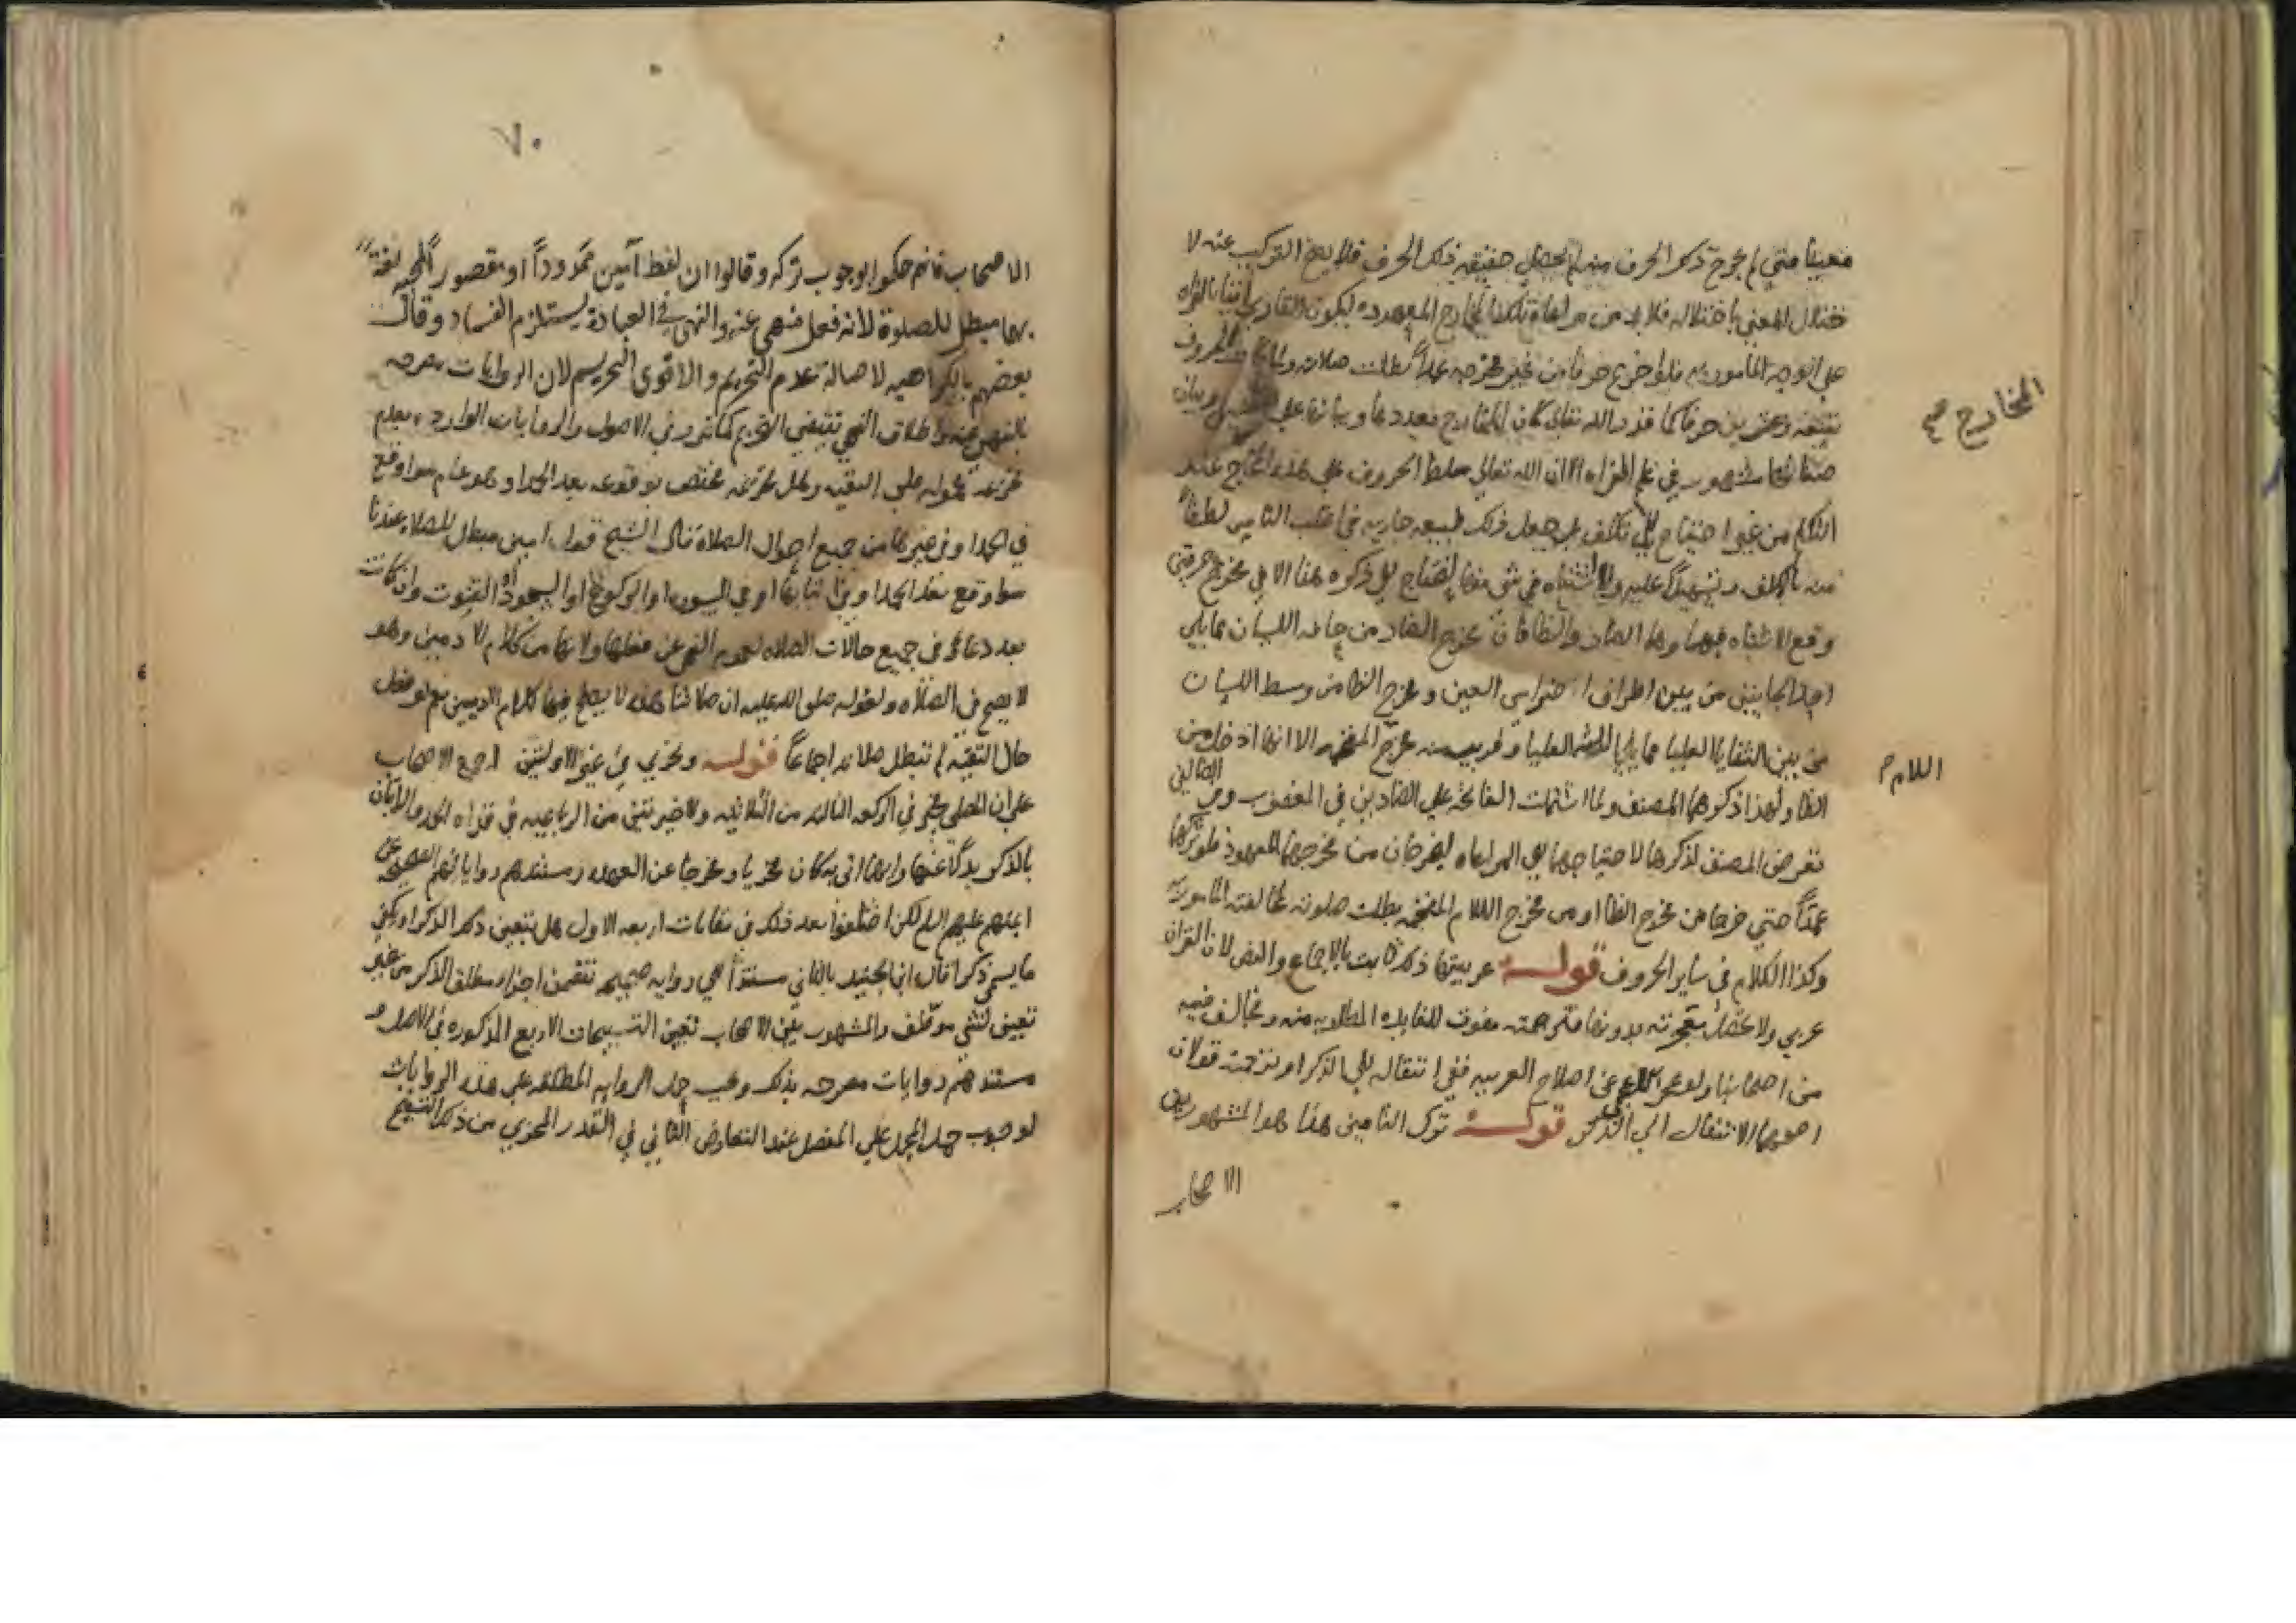 معينا متي لم يخرج ذكر الحرف منه لم يحصل حقيقة ذلك الحرف فلا يصح التركيب عنه لا
ختلال المعني باختلاله فلا بد من مراعاة تلك المخارج المعهوده ليكون القاري اتيا بالقراه
علي الوجه المامور به فلو اخرج حرفا من غير مخرجه عمداً بطلت صلاته ولما كانت الحروف
تسعة وعشرين حرفا كما قدر الله تعالي كان للمخارج تعددها وبيانها علي التفصيل وبيان
المخارج صح
صفاتها مشهور في علم القراه الا ان الله تعالي سلط الحروف علي هذه المخارج عند
التكلم من غير احتياج الي تكلف بل جعل ذلك طبيعه جاريه في اغلب الناس لطفاً
منه بالمكلف وتسهيلاً عليه ولا اشتباه في شي منها يحتاج الي ذكره هنا الا في مخرج حرفين
وقع الاشتباه فيهما وهما الضاد والظا فان مخرج الضاد من حافه اللسان مما يلي
احد الجانبين من بين اطراف اضراس العين ومخرج الظا من وسط اللسان
من بين الثنايا العليا مما يلي اللثه العليا وقريب منه مخرج المفخمه الا انها ادخل من
اللام م
الظا ولهذا ذكرهما المصنف ولما اشتملت الفاتحه علي الضادين في المغضوب وفي الضالين
تعرض المصنف لذكرهما لاحتياجهما الي المراعاه ليخرجان من مخرجهما المعهود فلو تركها
عمداً حتي خرجا من مخرج الظا او من مخرج اللام المفخمه بطلت صلوته لمخالفته المامور به
وكذا الكلام في ساير الحروف قوله عربيتها ذلك ثابت بالاجماع والنص لان القران
عربي ولا تحصل معجزته بدونها فترجمته مفوت للفايده المطلوبه منه ومخالف فيه
من اصحابنا ولو عجز عن اصلاح العربيه ففي انتقاله الي الذكر او ترجمته قولان
اصحهما الانتقال الي الذكر قوله ترك التامين هذا هو المشهور بين
الاصحاب
٧٠
الاصحاب فانهم حكموا بوجوب تركه وقالوا ان لفظ آمين ممدوداً او مقصوراً لمجيه لغةً
بهما مبطل للصلوة لانه فعل منهي عنه والنهي في العبادة يستلزم الفساد وقال
بعضهم بالكراهيه لاصالة عدم التحريم والاقوي التحريم لان الروايات مصرحه
بالنهي عنه واطلاق النهي تقتضي التحريم كما تقرر في الاصول والروايات الوارده بعدم
تحريمه محموله علي التقيه وهل تحريمه مختص بوقوعه بعد الحمد او هو عام سوا وقع
في الحمد او في غيرها من جميع احوال الصلاة قال الشيخ قول امين مبطل للصلاه عندنا
سوا وقع بعد الحمد او في اثنايها او في السوره او الركوع او السجود او القنوت وان كانت
بعد دعاء وفي جميع حالات الصلاه لعموم النهي عن فعلها ولانها من كلام الادميين وهو
لا يصح في الصلاه ولقوله صلي الله عليه ان صلاتنا هذه لا يصلح فيها كلام الادميين نعم لو فعل
حال التقيه لم تبطل صلاته اجماعاً قوله ويجزي في غير الاولتين اجمع الاصحاب
علي ان المصلي مخير في الركعه الثالثه من الثلاثيه والاخيرتين من الرباعيه في قراه الحمد والاتيان
بالذكر بدلاً عنها وايهما اتي به كان مجزيا ومخرجا عن العهده ومستندهم رواياتهم الصحيحه عن
ايمتهم عليهم السلم لكن اختلفوا بعد ذلك في مقامات اربعه الاول هل يتعين ذكر الذكر او يكفي
ما يسمي ذكرا قال ابن الجنيد بالثاني مستنداً الي روايه صحيحه تتضمن اجزاء مطلق الذكر من غير
تعيين لشي موظف والمشهور بين الاصحاب تعيين التسبيحات الاربع المذكوره في الاصل و
مستندهم روايات مصرحه بذلك وفيه حمل الروايه المطلقه علي هذه الروايات
لوجوب حمل المجمل علي المفصل عند التعارض الثاني في القدر المجزي من ذلك التسبيح